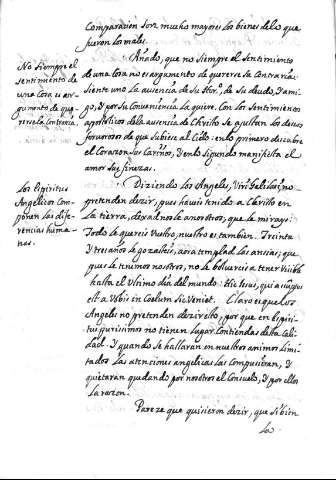 Comparacion son mucho mayores los bienes de lo que
fueron los males.
No siempre el
sentimiento de
una Cosa es ar-
gumento de que-
rerse lo Contrario.
Añado, que no siempre el sentimiento
de una Cosa no es argumento de quererse la Contraria:
siente uno la ausencia de su Sr., de su deudo, y ami-
go, y por su Conveniencia la quiere. Con los sentimientos
apostolicos de la ausencia de Christo se ajustan los deseos
de que subiera al Cielo: en lo primero descubre
el Corazon sus Cariños, y en lo segundo manifiesta el
amor sus finezas.
Los Espiritus
Angelicos Com-
ponen las dife-
rencias huma-
nas.
Diziendo los Angeles, Viri Galilaei, no
pretenden dezir, pues haveis tenido a Christo en
la tierra, dexadnosle a nosotros, que le mirays:
todo le quereis Vuestro, nuestro es tambien. Treinta
y tres años le gozasteis, aora templad las ansias; que
pues le tenemos nosotros, no le bolvereis a tener Visible
hasta el Ultimo dia del mundo: Hic Iesus, qui assumptus
est a Vobis in Coelum sic Veniet. Claro es que los
Angeles no pretenden dezir esto, por que en Espiri-
tus purissimos no tienen lugar Contiendas desta Cali-
dad. Y quando se hallaran en nuestros animos limi-
tados, las atenciones angelicas las Compusieran, y
quietaran quedando por nosotros el Consuelo, y por ellos
la razon.
Pareze que quisieron dezir, que si bien